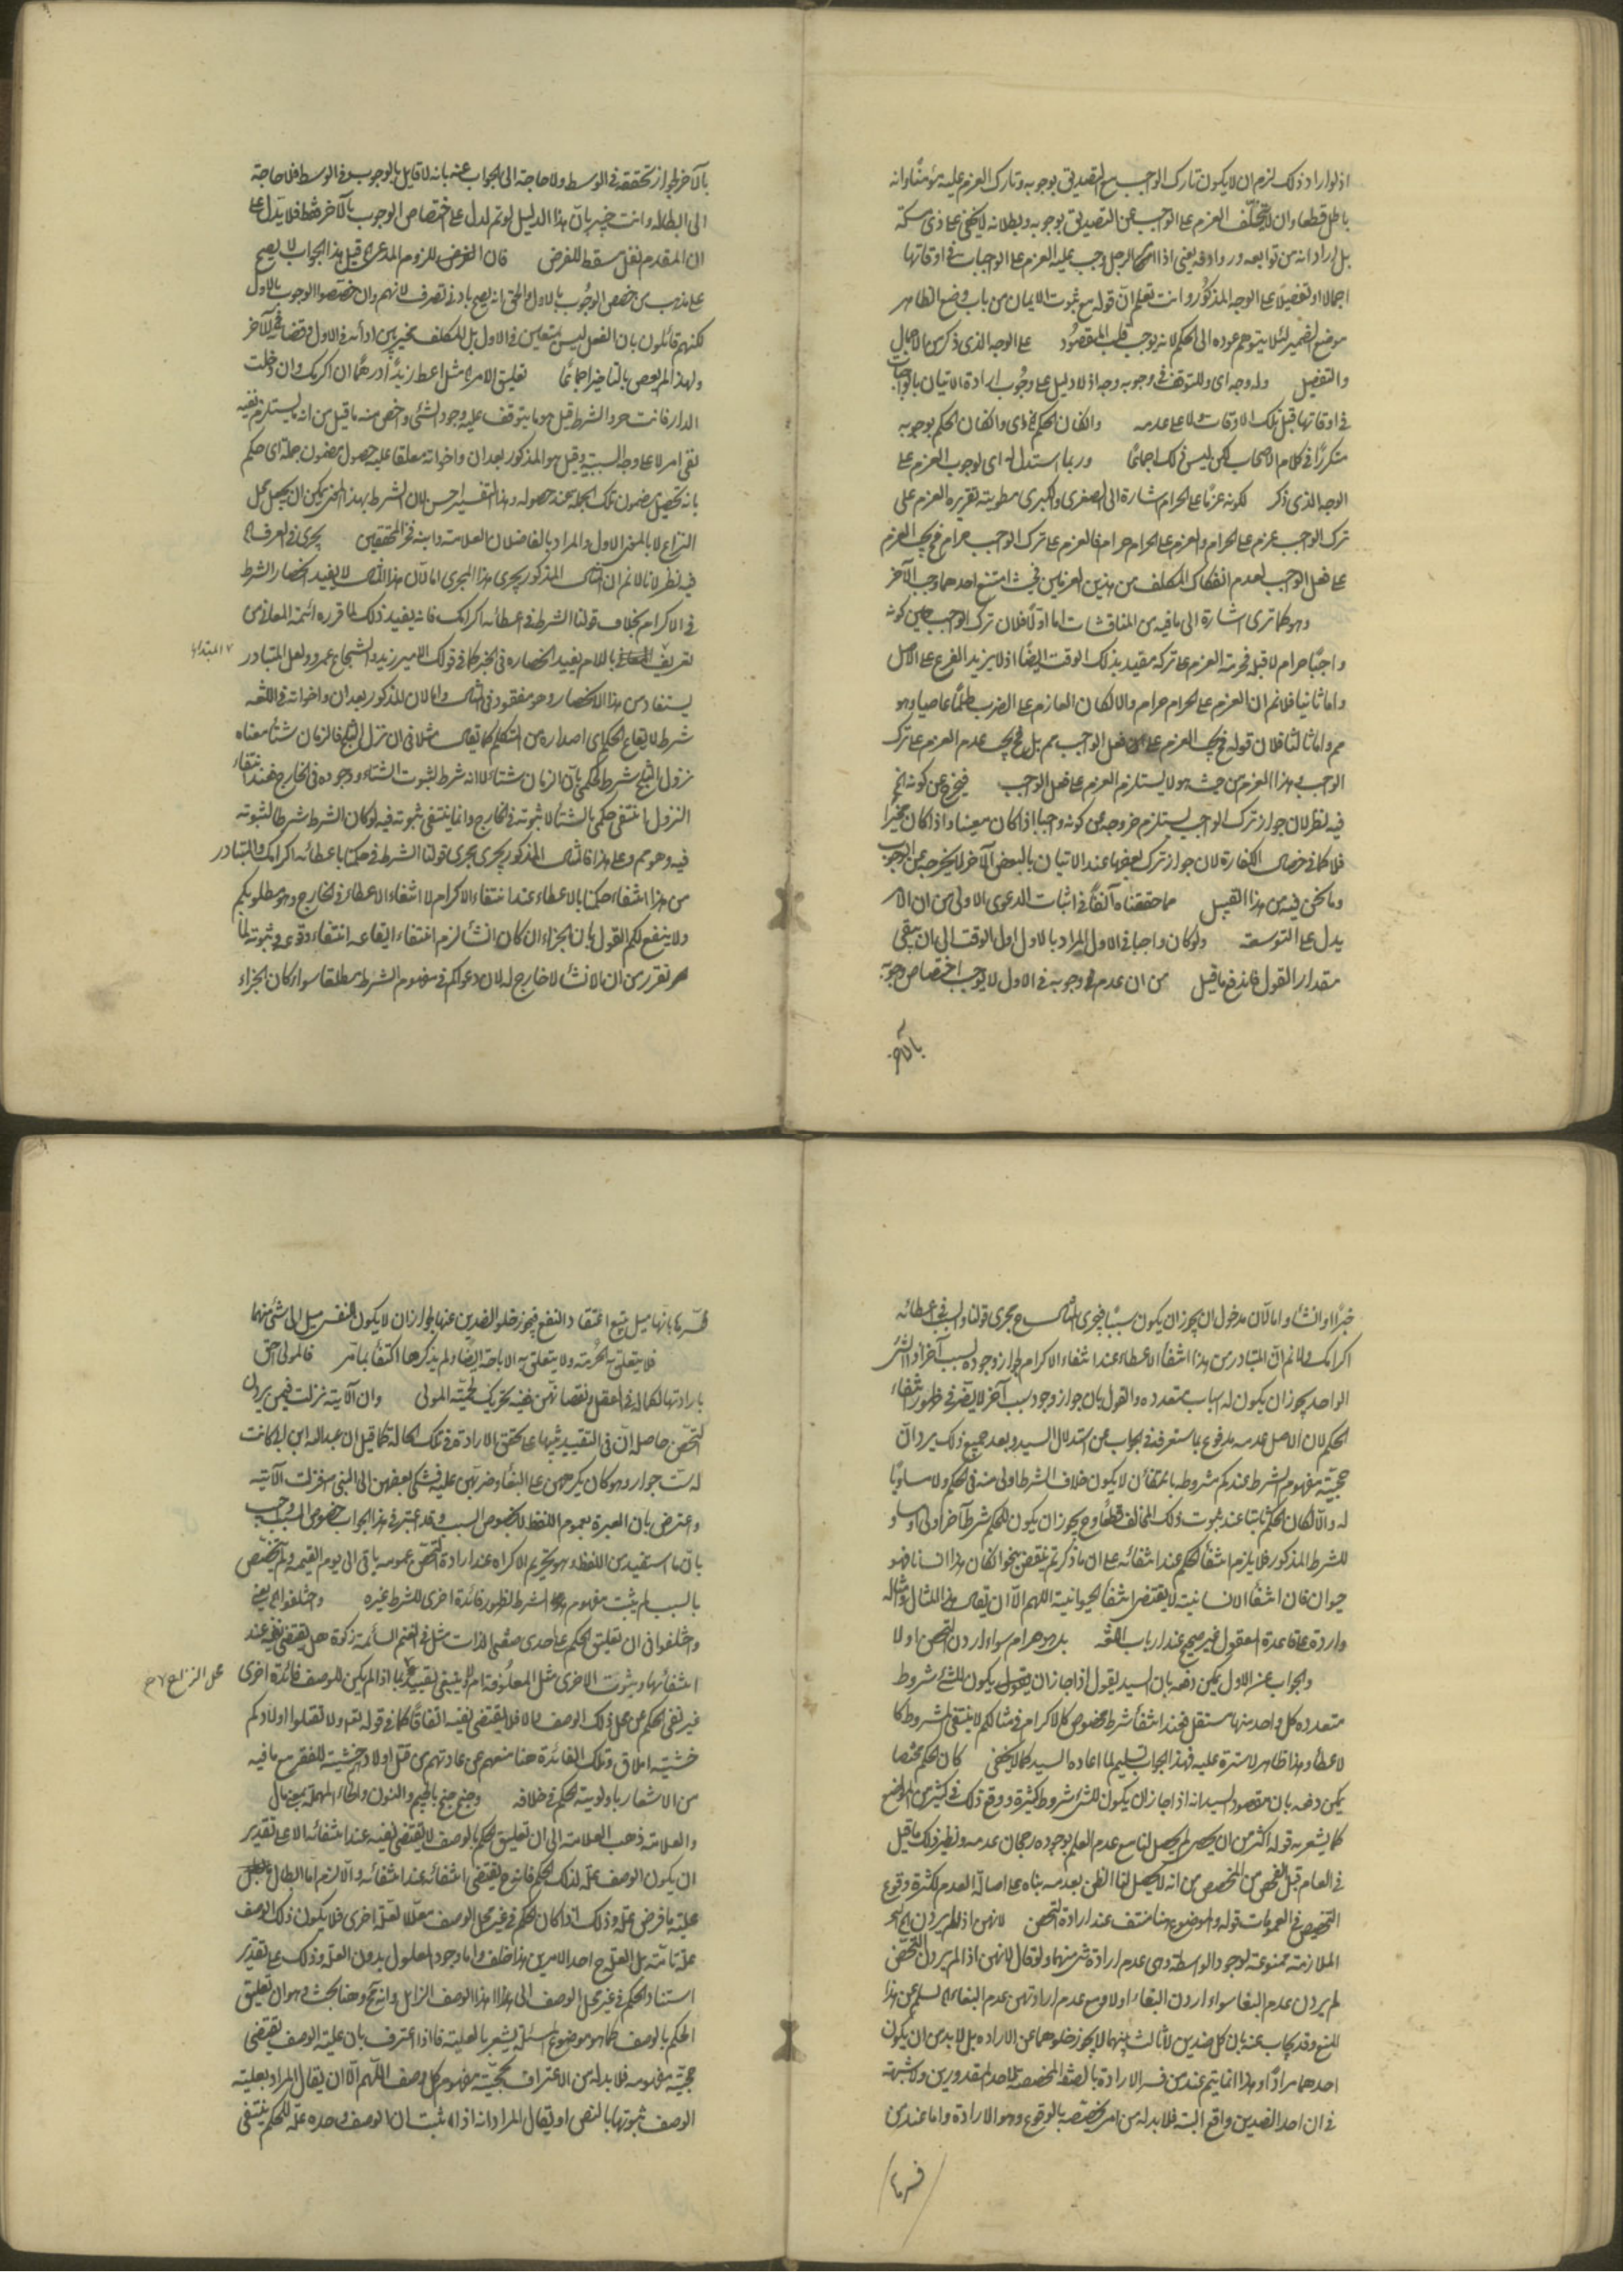 اذ لو اراد ذلك لزم ان لا يكون تارك الواجب مع التصديق بوجوبه وتارك العزم عليه مؤمنا وانه
باطل قطعا وان لا يتخلف العزم على الواجب عن التصديق بوجوبه وبطلانه لا يخفى على ذي مسكة
بل اراد انه من توابعه وروادفه يعني اذا آمن الرجل وجب عليه العزم على الواجبات في اوقاتها
اجمالا او تفصيلا على الوجه المذكور وانت تعلم ان قوله مع ثبوت الايمان من باب وضع الظاهر
موضع المضمر لئلا يتوهم عوده الى الحكم لانه يوجب قلب المقصود على الوجه الذي ذكر من الاجمال
والتفصيل وله وجه اي وللتوقف في وجوبه وجه اذ لا دليل على وجوب ارادة الاتيان بالواجبات
في اوقاتها قبل تلك الاوقات ولا على عدمه وان كان الحكم اي وان كان الحكم بوجوبه
متكررا في كلام الاصحاب لكن ليس ذلك اجماعا وربما استدل له اي لوجوب العزم على
الوجه الذي ذكر لكونه عزما على الحرام اشارة الى الصغرى والكبرى مطوية تقريره العزم على
ترك الواجب عزم على الحرام والعزم على الحرام حرام فالعزم على ترك الواجب حرام فيجب العزم
على فعل الواجب لعدم انفكاك المكلف من هذين العزمين فحيث امتنع احدهما وجب الآخر
وهو كما ترى اشارة الى ما فيه من المناقشات اما اولا فلان ترك الواجب حين كونه
واجبا حرام لا قبله فحرمة العزم على تركه مقيد بذلك الوقت ايضا اذ لا يزيد الفرع على الاصل
واما ثانيا فلانم ان العزم على الحرام حرام والا لكان العازم على الضرب ظلما عاصيا وهو
مم واما ثالثا فلان قوله فيجب العزم على فعل الواجب مم بل فيجب عدم العزم على ترك
الواجب وهذا العزم من حيث هو لا يستلزم العزم على فعل الواجب فيخرج عن كونه الخ
فيه نظر لان جواز ترك الواجب يستلزم خروجه عن كونه واجبا اذا كان معينا واذا كان مخيرا
فلا كما في خصال الكفارة لان جواز ترك بعضها عند الاتيان بالبعض الآخر لا يخرجه عن الوجوب
وما نحن فيه من هذا القبيل مما حققناه آنفا في اثبات الدعوى الاولى من ان الامر
يدل على التوسعة ولو كان واجبا في الاول المراد بالاول اول الوقت الى ان يبقى
مقدار القول فاندفع ما قيل من ان عدم وجوبه في الاول لا يوجب اختصاص وجوبه
بالآخر
بالآخر لجواز تحققه في الوسط ولا حاجة الى الجواب عنه بانه لا قايل بالوجوب في الوسط فلا حاجة
الى ابطاله وانت خبير بان هذا الدليل لو تم لدل على اختصاص الوجوب بالآخر فقط فلا يدل على
ان المقدم نفل سقط للفرض فان الغرض للزوم المدعى قيل هذا الجواب لا يصح
على مذهب من خصص الوجوب بالاول والحق انه يصح بادنى تصرف لانهم وان خصصوا الوجوب بالاول
لكنهم قائلون بان الفعل ليس بمتعين في الاول بل المكلف مخير بين ادائه في الاول وقضائه في الآخر
ولهذا لم يعص بالتاخير اجماعا تعليق الامر مثل اعط زيدا درهما ان اكرمك وان دخلت
الدار فانت حر والشرط قيل هو ما يتوقف عليه وجود الشئ واخص منه ما قيل من انه ما يستلزم نفيه
نفي امر لا على وجه السببية وقيل هو المذكور بعد ان واخواته معلقا عليه حصول مضمون جملة اي حكم
بانه يحصل مضمون تلك الجملة عند حصوله وهذا التفسير احسن لان الشرط بهذا المعنى يمكن ان يجعل محل
النزاع لا بالمعنى الاول والمراد بالفاضلان العلامة وابنه فخر المحققين يجري في العرف الخ
فيه نظر لانا لا نم ان المثال المذكور يجري هذا المجرى اما لان هذا المثال لا يفيد انحصار الشرط
في الاكرام بخلاف قولنا الشرط في اعطائه اكرامك فانه يفيد ذلك لما قرره ائمة المعاني من
تعريف باللام يفيد انحصاره في الخبر كما في قولك الامير زيد والشجاع عمرو ولعل المتبادر
المبتداء
يستفاد من هذا الانحصار وهو مفقود في المثال واما لان المذكور بعد ان واخواته في اللغة
شرط لايقاع الحكم اي اصداره من المتكلم كما يقال مثلا في ان نزل الثلج فالزمان شتاء معناه
نزول الثلج شرط لحكمي بان الزمان شتاء لا انه شرط لثبوت الشتاء ووجوده في الخارج فعند انتفاء
النزول انتفى حكمي بالشتاء لا ثبوته في الخارج وانما ينتفي ثبوته فيه لو كان الشرط شرطا لثبوته
فيه وهو مم وعلى هذا فالمثال المذكور يجري مجرى قولنا الشرط في حكمنا باعطائه اكرامك والمتبادر
من هذا انتفاء حكمنا بالاعطاء عند انتفاء الاكرام لا انتفاء الاعطاء في الخارج وهو مطلوبكم
ولا ينفع لكم القول بان الجزاء ان كان انشاء لزم انتفاء ايقاعه انتفاء وقوعه وثبوته لما
تقرر من ان الانشاء لا خارج له لان دعواكم في مفهوم الشرط مطلقا سواء كان الجزاء
خبرا او انشاء واما لان مدخول ان يجوز ان يكون سببا فيجري المثال ح مجرى قولنا والسبب في اعطائه
اكرامك ولا نم ان المتبادر من هذا انتفاء الاعطاء عند انتفاء الاكرام لجواز وجوده لسبب آخر اذ الشئ
الواحد يجوز ان يكون له اسباب متعدده والقول بان جواز وجود سبب آخر لا يضر في ظهور انتفاء
الحكم لان الاصل عدمه مدفوع بما ستعرفه في الجواب عن استدلال السيد وبعد جميع ذلك يرد ان
حجية مفهوم الشرط عندكم مشروطة بانتفاء ان لا يكون خلاف الشرط اولى منه في الحكم ولا مساويا
له والا لكان الحكم ثابتا عند ثبوت ذلك المخالف قطعا وح يجوز ان يكون للحكم شرطا آخر اولى او مساو
للشرط المذكور فلا يلزم انتفاء الحكم عند انتفائه على ان ما ذكرتم ينتقض بنحو ان كان هذا انسانا فهو
حيوان فان انتفاء الانسانية لا يقتضي انتفاء الحيوانية اللهم الا ان يقال هذا المثال وامثاله
واردة على قاعدة المعقول غير صحيح عند ارباب اللغة بل هو حرام سواء اردن التحصن او لا
والجواب عن الاول يمكن دفعه بان السيد يقول اذا جاز ان يكون للشئ شروط
متعدده كل واحد منها مستقل فعند انتفاء شرط مخصوص كالاكرام في مثالكم لا ينتفي المشروط كا
لاعطاء وهذا ظاهر لا سترة عليه فهذا الجواب تسليم لما اعاده السيد كما لا يخفى كان الحكم مختصا
يمكن دفعه بان مقصود السيد انه اذا جاز ان يكون للشئ شروط كثيرة ووقع ذلك في كثير من المواضع
كما يشعر به قوله اكثر من ان يحصى لم يحصل لنا مع عدم العلم بوجوده رجحان عدمه ونظير ذلك ما قيل
في العام قبل الفحص من المخصص من انه لا يحصل لنا الظن بعدمه بناء على اصالة العدم لكثرة وقوع
التخصيص في العمومات قوله والموضوع هنا منتف عند ارادة التحصن لانهن اذا لم يردن الخ
الملازمة ممنوعة لوجود الواسطة وهي عدم ارادة شئ منهما ولو قال لانهن اذا لم يردن التحصن
لم يردن عدم البغاء سواء اردن البغاء او لا ومع عدم ارادتهن عدم البغاء الخ لسلم عن هذا
المنع وقد يجاب عنه بان كل ضدين لا ثالث بينهما لا يجوز خلوهما عن الارادة بل لا بد من ان يكون
احدهما مرادا وهذا انما يتم عند من فسر الارادة بالصفة المخصصة لاحد المقدورين ولا شبهة
في ان احد الضدين واقع البتة فلا بد له من امر يختصه بالوقوع وهو الارادة واما عند من
فسرها
فسرها بانها ميل يتبع اعتقاد النفع فيجوز خلو الضدين عنها لجواز ان لا يكون للنفس ميل الى شئ منهما
فلا يتعلق به الحرمة ولا يتعلق به الاباحة ايضا ولم يذكرها اكتفاء بما مر فالمولى احق
بارادتها لكماله في العقل ونقصانهن ففيه تحريك لحمية المولى وان الآية نزلت فيمن يردن
التحصن حاصله ان في التقييد تنبيها على تحقق الارادة في تلك الحالة كما قيل ان عبدالله ابن ابي كانت
له ست جوار وهو كان يكرههن على البغاء وضربهن عليه فشكى بعضهن الى النبي ص فنزلت الآية
واعترض بان العبرة بعموم اللفظ لا بخصوص السبب وقد اعتبر في هذا الجواب خصوص السبب واجيب
بان ما استفيد من اللفظ وهو تحريم الاكراه عند ارادة التحصن عمومه باق الى يوم القيمة ولم يتخصص
بالسبب لم يثبت مفهوم الشرط لظهور فائدة اخرى للشرط غيره واختلفوا الخ يعني
واختلفوا في ان تعليق الحكم على احدى صفتي الذات مثل في الغنم السائمة زكوة هل يقتضي نفيه عند
انتفائها وثبوت الاخرى مثل المعلوفة ام لا وينبغي تقييد بما اذا لم يكن للوصف فائدة اخرى
محل النزاع
غير نفي الحكم عن محل ذلك الوصف والا فلا يقتضي نفيه اتفاقا كما في قوله تعالى ولا تقتلوا اولادكم
خشية املاق وتلك الفائدة هنا منعهم عن عادتهم من قتل اولادهم خشية للفقر مع ما فيه
من الاشعار باولوية الحكم في خلافه وجنح جنح بالجيم والنون والحاء المهملة بمعنى مال
والعلامة ذهب العلامة الى ان تعليق الحكم بالوصف لا يقتضي نفيه عند انتفائه الا على تقدير
ان يكون الوصف علة لذلك الحكم فانه ح يقتضي انتفائه عند انتفائه والا لزم اما ابطال
علية ما فرض علة وذلك اذا كان الحكم في غير محل الوصف معللا لعلة اخرى فلا يكون ذلك الوصف
علة تامة بل العلة ح احد الامرين هذا خلف واما وجود المعلول بدون العلة وذلك على تقدير
استناد الحكم في غير محل الوصف الى هذا الوصف الزايل وانه مح وهنا بحث وهو ان تعليق
الحكم بالوصف كما هو موضوع المسئلة يشعر بالعلية فاذا اعترف بان علية الوصف يقتضي
حجية مفهومه فلا بد له من الاعتراف بحجية مفهوم كل وصف اللهم الا ان يقال المراد بعلية
الوصف ثبوتها بالنص او يقال المراد انه اذا ثبت ان الوصف وحده علة للحكم ينتفي